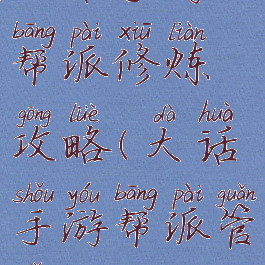 bāng pài xiū liàn
帮派修炼
gōng lüè dà huà
攻略(大话
shǒu yóu bāng pài guǎn
手游帮派管